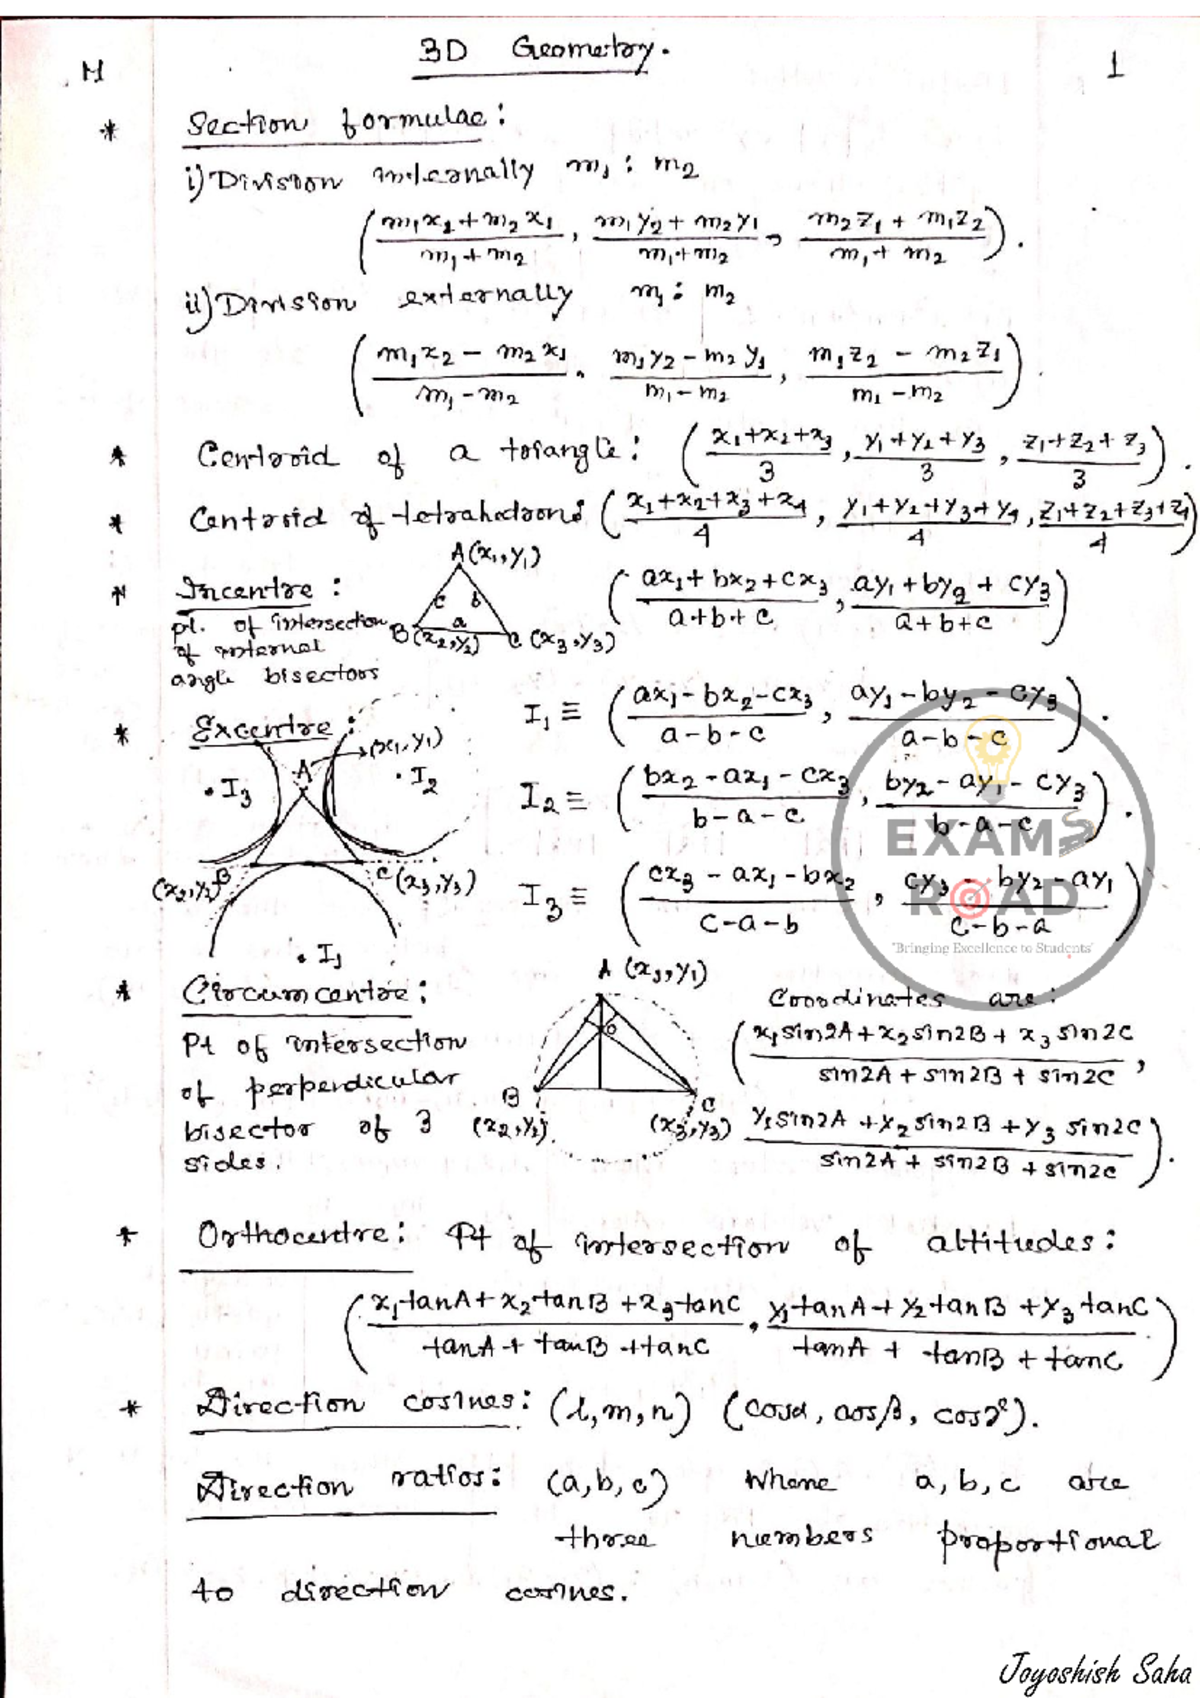 3D Geometry.
M
1
* Section formulae:
i) Division internally m₁ : m₂
((m₁x₂ + m₂x₁)/(m₁ + m₂), (m₁y₂ + m₂y₁)/(m₁ + m₂), (m₂z₁ + m₁z₂)/(m₁ + m₂)).
ii) Division externally m₁ : m₂
((m₁x₂ - m₂x₁)/(m₁ - m₂), (m₁y₂ - m₂y₁)/(m₁ - m₂), (m₁z₂ - m₂z₁)/(m₁ - m₂)).
* Centroid of a triangle: ((x₁+x₂+x₃)/3, (y₁+y₂+y₃)/3, (z₁+z₂+z₃)/3).
* Centroid of tetrahedron: ((x₁+x₂+x₃+x₄)/4, (y₁+y₂+y₃+y₄)/4, (z₁+z₂+z₃+z₄)/4)
* Incentre:
pt. of intersection
of internal
angle bisectors
A(x₁,y₁)
c b
a
B(x₂,y₂) C(x₃,y₃)
((ax₁+bx₂+cx₃)/(a+b+c), (ay₁+by₂+cy₃)/(a+b+c))
* Excentre:
A (x₁,y₁)
.I₃ .I₂
(x₂,y₂)B C(x₃,y₃)
.I₁
I₁ ≡ ((ax₁-bx₂-cx₃)/(a-b-c), (ay₁-by₂-cy₃)/(a-b-c)).
I₂ ≡ ((bx₂-ax₁-cx₃)/(b-a-c), (by₂-ay₁-cy₃)/(b-a-c)).
I₃ ≡ ((cx₃-ax₁-bx₂)/(c-a-b), (cy₃-by₂-ay₁)/(c-b-a))
EXAMS
ROAD
"Bringing Excellence to Students"
* Circumcentre:
Pt of intersection
of perpendicular
bisector of 3
sides.
A (x₁,y₁)
O
B C
(x₂,y₂) (x₃,y₃)
Coordinates are:
((x₁sin2A+x₂sin2B+x₃sin2C)/(sin2A+sin2B+sin2C),
(y₁sin2A+y₂sin2B+y₃sin2C)/(sin2A+sin2B+sin2C)).
* Orthocentre: Pt of intersection of altitudes:
((x₁tanA+x₂tanB+x₃tanC)/(tanA+tanB+tanC), (y₁tanA+y₂tanB+y₃tanC)/(tanA+tanB+tanC))
* Direction cosines: (l,m,n) (cosα, cosβ, cosγ).
Direction ratios: (a,b,c) where a,b,c are
three numbers proportional
to direction cosines.
Joyoshish Saha